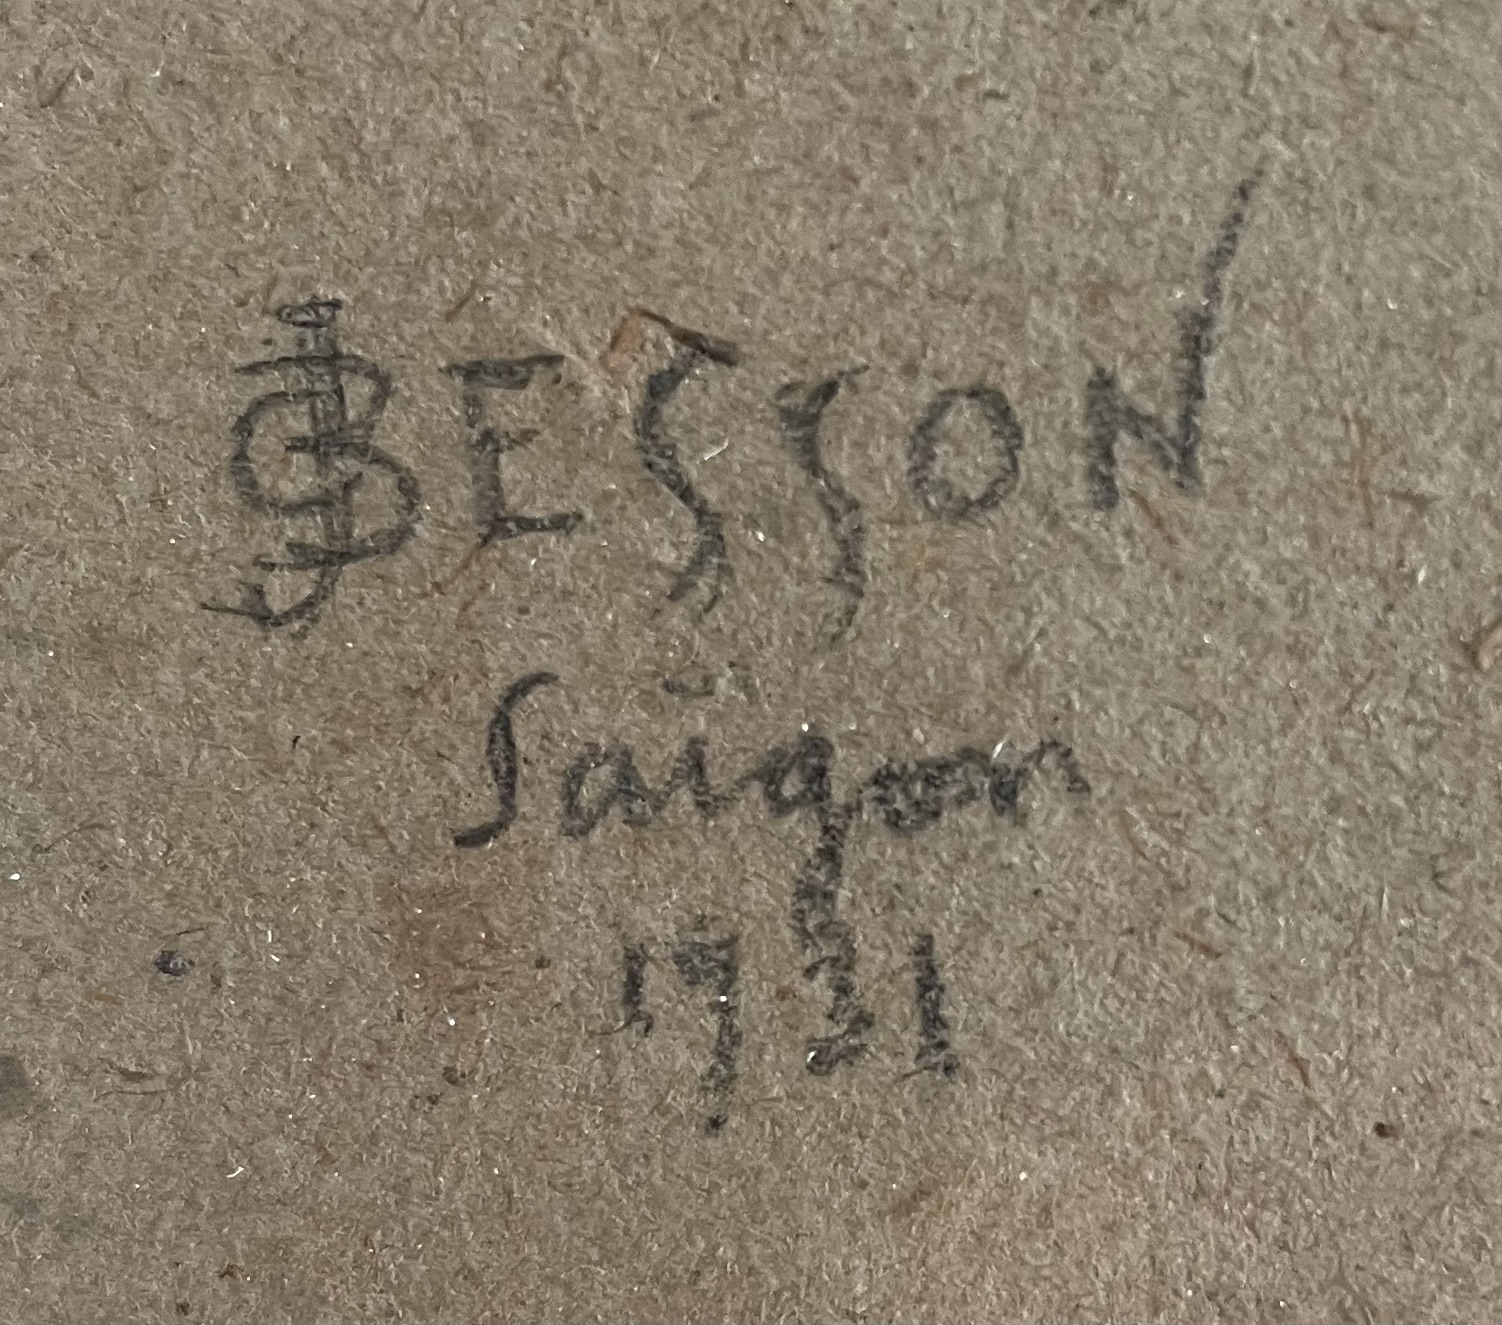 GJBESSON
Saigon
1931